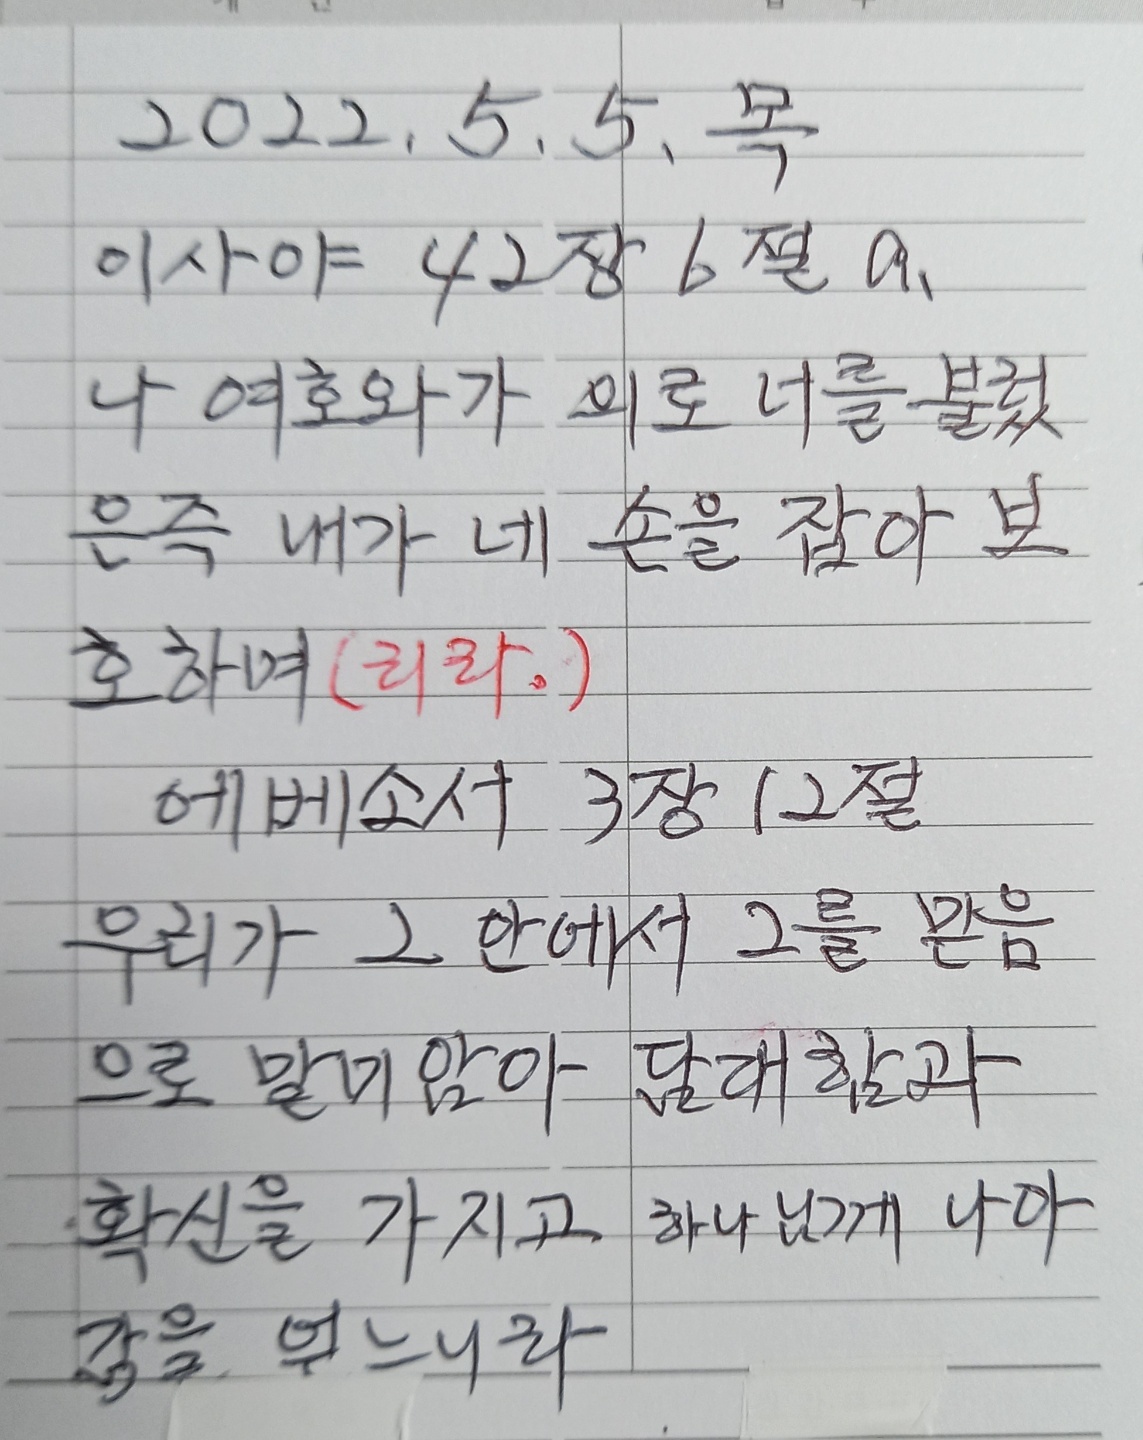 2022. 5. 5. 목
이사야 42장 6절 a.
나 여호와가 의로 너를 불렀
은즉 내가 네 손을 잡아 보
호하며(리라.)
에베소서 3장 12절
우리가 그 안에서 그를 믿음
으로 말미암아 담대함과
확신을 가지고 하나님께 나아
감을 얻느니라